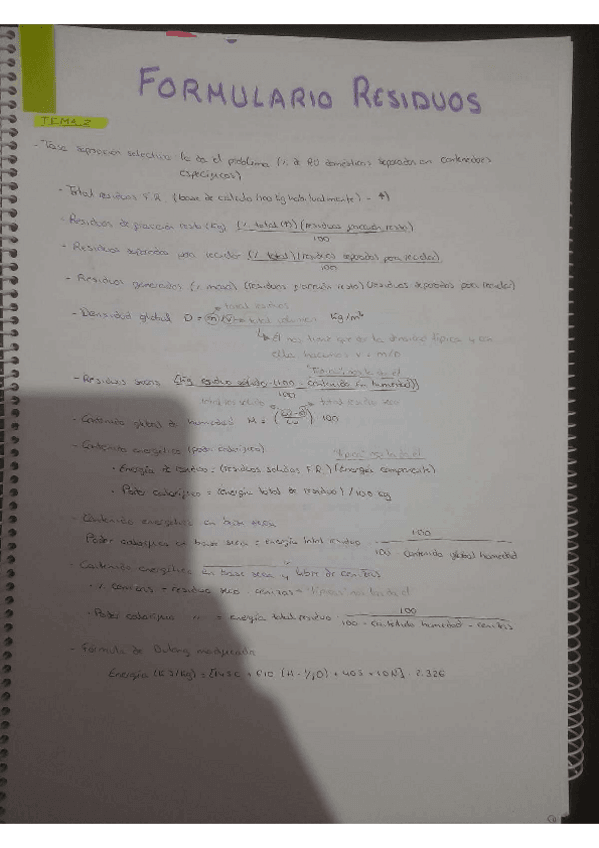 FORMULARIO RESIDUOS
TEMA 2
- Tasa separación selectiva la da el problema (% de RU domésticos separados en contenedores
específicos)
· Total residuos F.R. (base de cálculo 100 kg habitualmente)
- Residuos de fracción resto (kg) (% total) (residuos fracción resto)
100
- Residuos separados para reciclar (% total) (residuos separados para reciclar)
100
- Residuos generados (% masa) (residuos fracción resto) (residuos separados para reciclar)
total residuos
- Densidad global D = m/ total volumen kg/m³
El vol. tiene que
ella hacemos v = m/D
"Típico" nos la da él
- Residuos secos (kg residuo sólido · (100 - contenido en humedad))
100
total residuo seco
- Contenido global de humedad M = · 100
- Contenido energético (poder calorífico) "típico" nos la da él
· Energía de residuo = (residuos sólidos F.R.) (energía componente)
· Poder calorífico = (energía total de residuo) / 100 kg
- Contenido energético en base seca
Poder calorífico en base seca = energía total residuo · 100
100 - contenido global humedad
- Contenido energético en base seca y libre de cenizas
· % cenizas = residuo seco · cenizas "típicas" nos las da él
· Poder calorífico = energía total residuo · 100
100 - contenido humedad - cenizas
- Fórmula de Dulong modificada
Energía (KJ/kg) = [145C + 610 (H - 1/8 O) + 40S + 10N] · 2.326